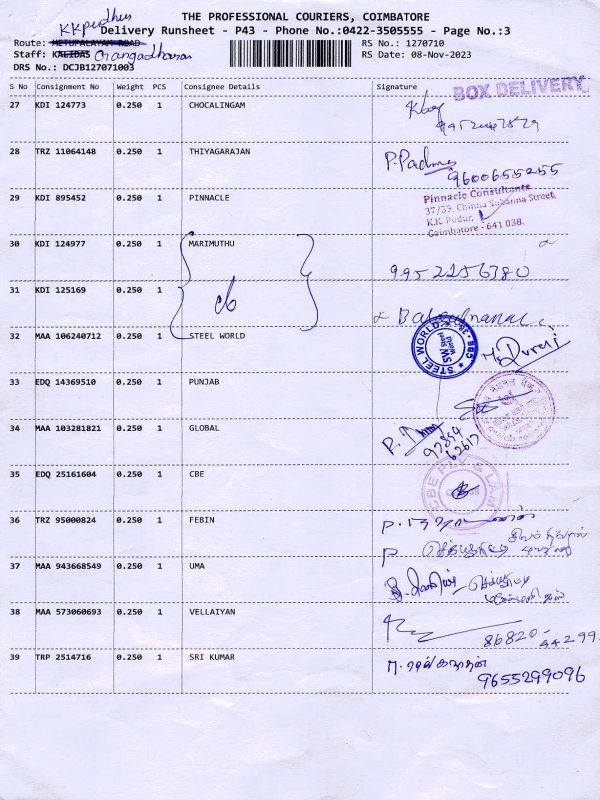 THE PROFESSIONAL COURIERS, COIMBATORE
KKpudhur
Delivery Runsheet - P43 - Phone No.:0422-3505555 - Page No.:3
Route: METUPALAYAM ROAD
RS No.: 1270710
Staff: KALIDAS
RS Date: 08-Nov-2023
DRS No.: DCJB127071003
S No Consignment No Weight PCS Consignee Details Signature
BOX DELIVERY
27 KDI 124773 0.250 1 CHOCALINGAM
28 TRZ 11064148 0.250 1 THIYAGARAJAN P. Padma
9600655255
29 KDI 895452 0.250 1 PINNACLE
Pinnacle Consultants
37/33, Chinna Subanna Street,
K.K. Pudur,
Coimbatore - 641 038.
30 KDI 124977 0.250 1 MARIMUTHU
9952256380
31 KDI 125169 0.250 1
cb
32 MAA 106240712 0.250 1 STEEL WORLD
STEEL WORLD
33 EDQ 14369510 0.250 1 PUNJAB
34 MAA 103281821 0.250 1 GLOBAL
35 EDQ 25161604 0.250 1 CBE
36 TRZ 95000824 0.250 1 FEBIN
37 MAA 943668549 0.250 1 UMA
38 MAA 573060693 0.250 1 VELLAIYAN
86820-
44299
39 TRP 2514716 0.250 1 SRI KUMAR
9655299096